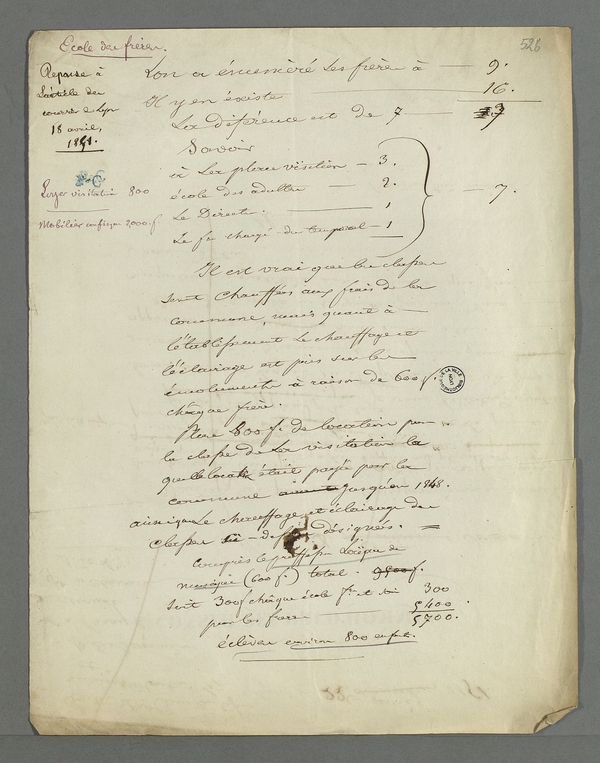 École des frères.
526
Réponse à
l'article du
courrier de Lyon
18 avril,
1851.
Loyer visitation 800
Mobilier 2,000 f
L'on a énuméré les frère à — 9.
Il y en existe — 16.
La diférence est de 7 — 7
Savoir
à la place visitation — 3.
école des adultes — 2.
Le Direct. — 1
Le fr. chargé du temporel — 1
— 7.
Il est vrai que les classes
sont chauffées aux frais de la
commune, mais quant à
l'établissement le chauffage et
l'éclairage est pris sur les
émoluments à raison de 600 f.
chaque frère.
Plus 800 f. de location pour
la classe de la visitation la
quelle locat. était payée par la
commune jusqu'en 1848.
ainsi que le chauffage et éclairage des
classes désignés.
compris le
(600 f.) total. 9500 f.
soit 300 f chaque école 300
pour les frères 5400
5700.
élèves environ 800 enfts.